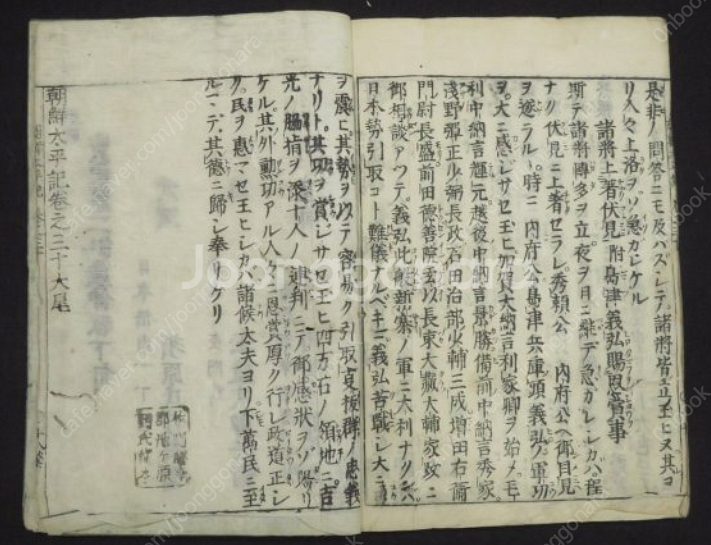 是非ノ問答ニモ及バズシテ諸將皆立玉ヒヌ又其ヨ
リ人々上洛ヲソ急ガレケル
諸將上著伏見附島津義弘賜恩賞事
斯テ諸將博多ヲ立夜ヲ日ニ繼デ急ガレシカバ程
ナク伏見ニ上著セラレ秀頼公 内府公ヘ御目見
ヲ遂ラル時ニ内府公島津兵庫頭義弘ノ軍功
ヲ大ニ感ジサセ玉ヒ加賀大納言利家卿ヲ始メ毛
利中納言輝元越後中納言景勝備前中納言秀家
淺野彈正少弼長政石田治部少輔三成増田右衛
門尉長盛前田德善院玄以長束大藏大輔家政ニ
御相談アツテ義弘此度新寨ノ軍ニ大利ナクンバ
日本勢引取コト難義ナルベキニ義弘苦戰シ大ニ
ヲ震ヒ其勢ヲ以テ容易ク引取支拔群ノ忠義
ナリト其功ヲ賞ジサセ玉ヒ四万石ノ領地ニ吉
光ノ腸指ヲ添十人ノ連判ニテ御感狀ヲゾ賜リ
ケル其外勲功アル人々ニ恩賞厚ク行レ政道正シ
ク民ヲ惠マセ玉ヒシカバ諸候太夫ヨリ下萬民ニ至
ルマデ其德ニ歸シ奉リケリ
朝鮮太平記卷之三十大尾
Joonggonara
cafe.naver.com/joonggonara